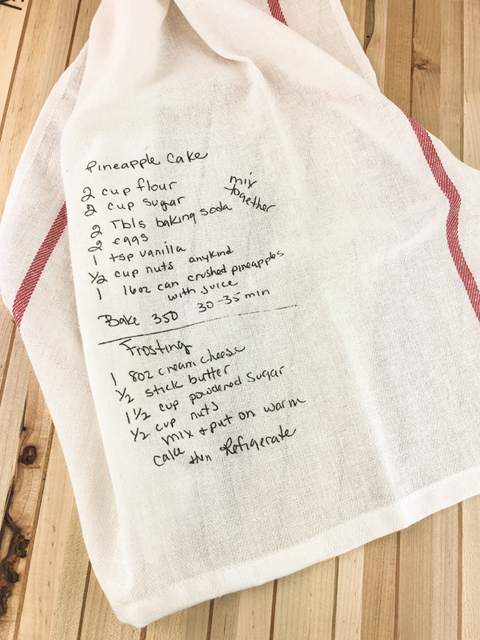 Pineapple Cake
2 cup flour
2 cup sugar
mix together
2 Tbls baking soda
2 eggs
1 tsp vanilla
1/2 cup nuts anykind
1 16oz can crushed pineapples
with juice
Bake 350 30-35 min
Frosting
1 8oz cream cheese
1/2 stick butter
1 1/2 cup powdered sugar
1/2 cup nuts
mix + put on warm
cake then Refigerate